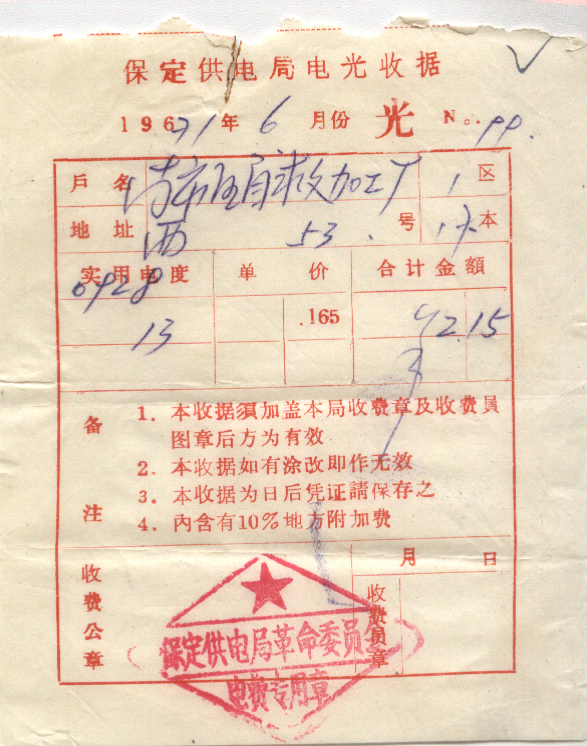 保定供电局电光收据
1971年6月份 光 No. 99.
戶名 加工厂 1区
地址 西 53. 号 17本
实用电度 单价 合计金額
0928
13 .165 ¥2.15
备注
1. 本收据須加盖本局收费章及收费員
图章后方为有效
2. 本收据如有涂改即作无效
3. 本收据为日后凭証請保存之
4. 内含有10%地方附加费
月 日
收费公章 收费員章
保定供电局革命委員会
电费专用章